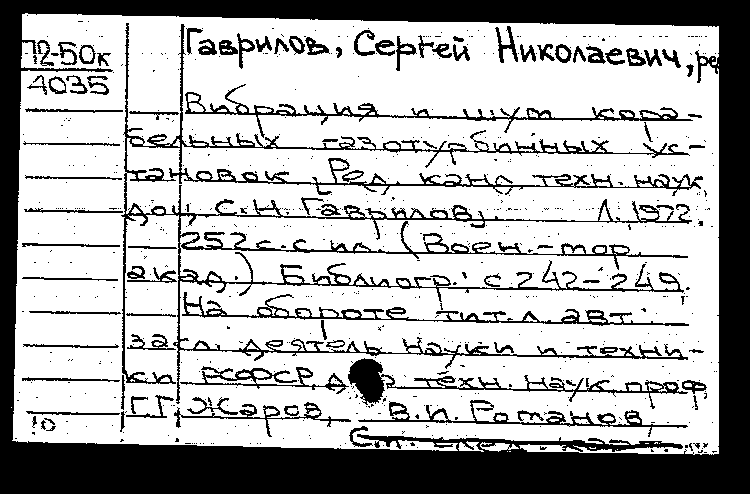 Гаврилов, Сергей Николаевич, ре
72-50к
4035
Вибрация и шум кора-
бельных газотурбинных ус-
тановок. [Ред. канд. техн. наук,
доц. С.Н. Гаврилов]. Л., 1972.
252 с. с ил. (Воен.-мор.
акад.) Библиогр.: с 242-249.
На обороте тит. л. авт.:
засл. деятель науки и техни-
ки РСФСР, техн. наук, проф.
Г.Г. Жаров, В.И. Романов,
10
См. след. карт.